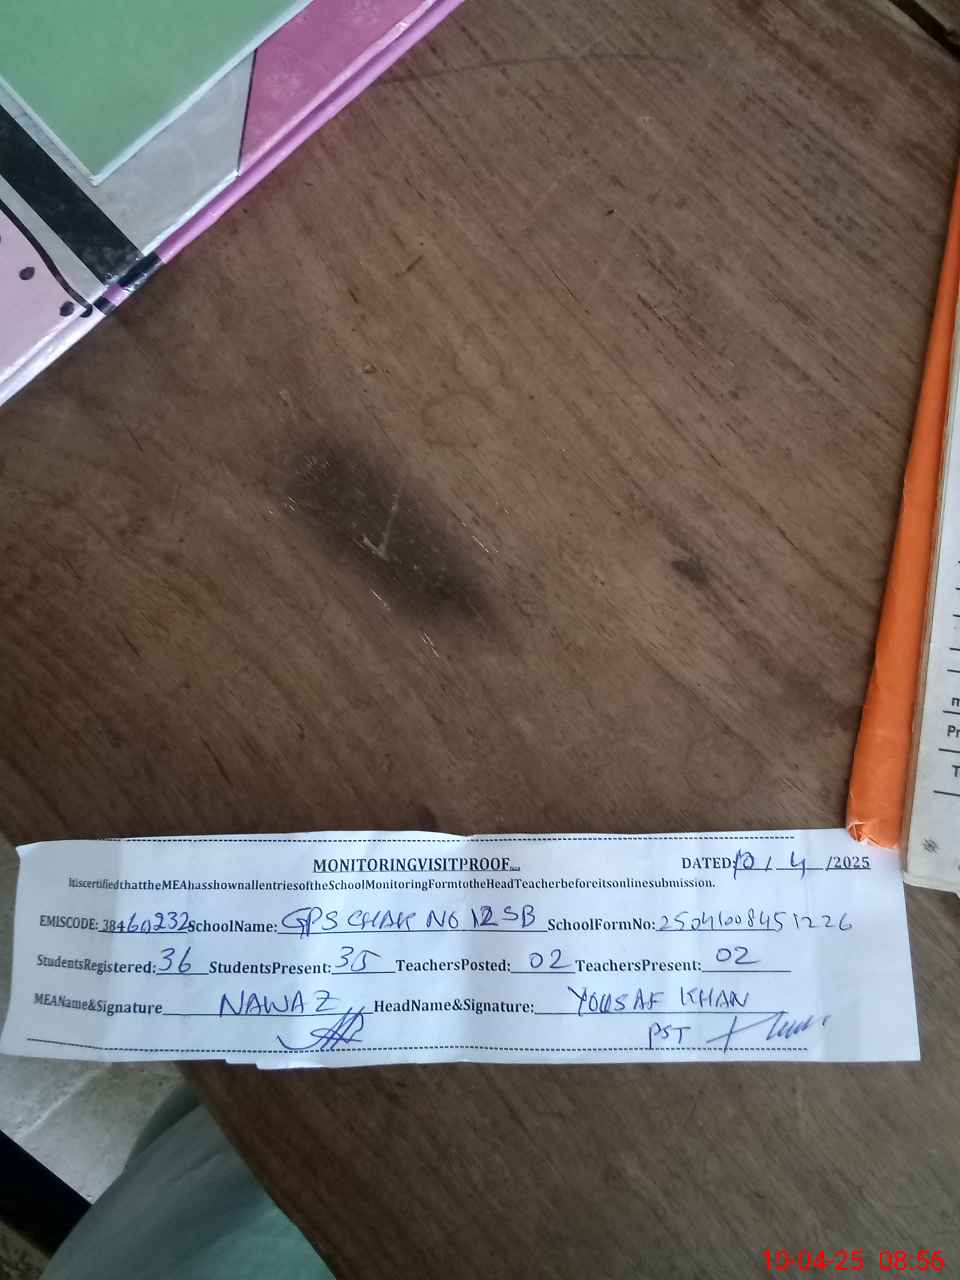 MONITORINGVISITPROOF
DATED: 10 / 4 /2025
ItiscertifiedthattheMEAhasshownallentriesoftheSchoolMonitoringFormtotheHeadTeacherbeforeitsonlinesubmission.
EMISCODE: 38460232 SchoolName: GPS CHAK NO 12 SB SchoolFormNo: 2504100845 1226
StudentsRegistered: 36 StudentsPresent: 35 TeachersPosted: 02 TeachersPresent: 02
MEAName&Signature NAWAZ HeadName&Signature: YOUSAF KHAN
PST
m
Pr
T
10-04-25 08:56